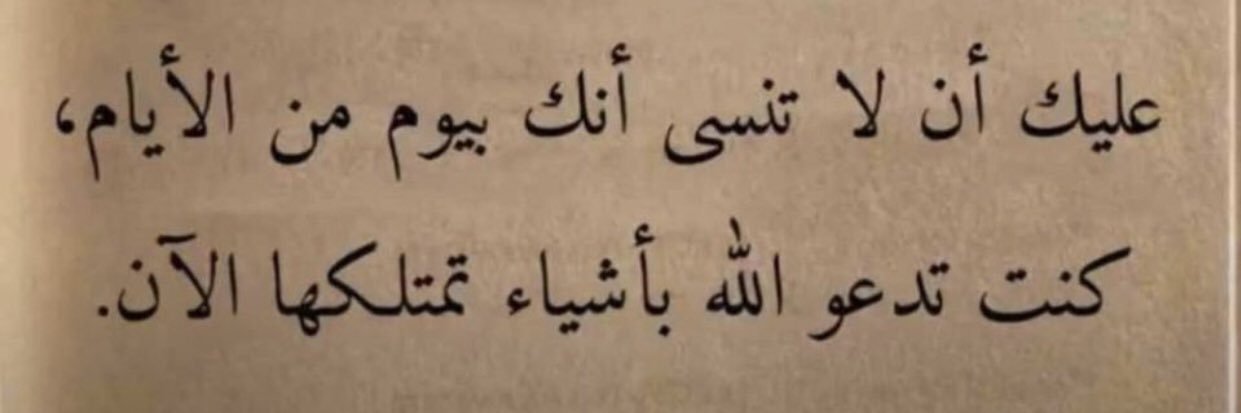 عليك أن لا تنسى أنك بيوم من الأيام،
كنت تدعو الله بأشياء تمتلكها الآن.